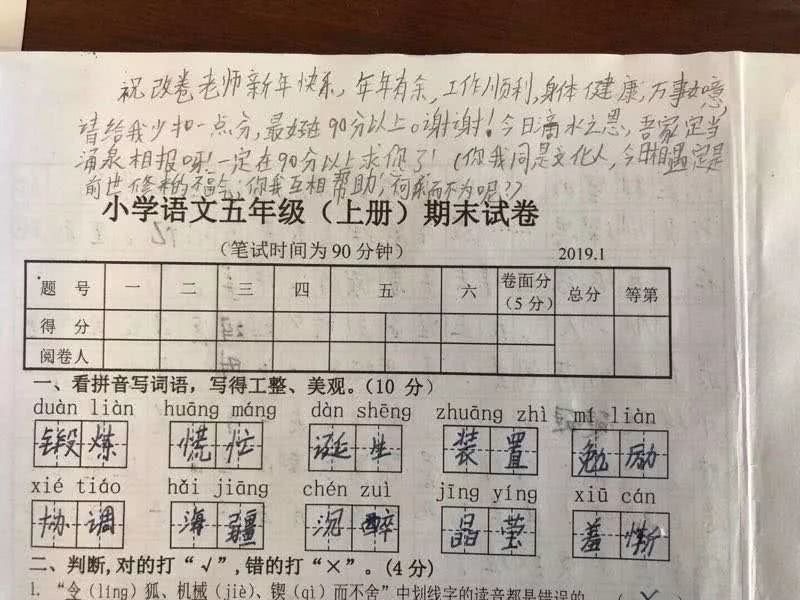 祝改卷老师新年快乐,年年有余,工作顺利,身体健康,万事如意,
请给我少扣一点分,最好在90分以上。谢谢!今日滴水之恩,吾家定当
涌泉相报呀!一定在90分以上求你了!(你我同是文化人,今日相遇定是
前世修来的福气,你我互相帮助,何乐而不为呢?)
小学语文五年级(上册)期末试卷
(笔试时间为90分钟) 2019.1
题 号 一 二 三 四 五 六 卷面分(5分) 总分 等第
得 分
阅卷人
一、看拼音写词语,写得工整、美观。(10 分)
duàn liàn huāng máng dàn shēng zhuāng zhì mí liàn
锻炼 慌忙 诞生 装置 勉励
xié tiáo hǎi jiāng chén zuì jīng yíng xiū cán
协调 海疆 沉醉 晶莹 羞惭
二、判断,对的打“√”,错的打“×”。(4分)
1. “令(líng)狐、机械(jiè)、锲(qì)而不舍”中划线字的读音都是错误的。 (×